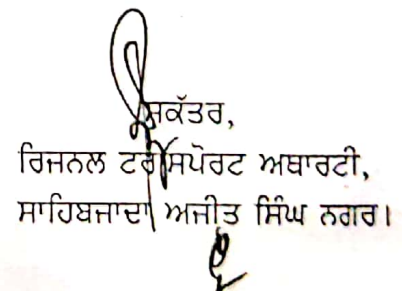 ਸਕੱਤਰ,
ਰਿਜਨਲ ਟਰਾਂਸਪੋਰਟ ਅਥਾਰਟੀ,
ਸਾਹਿਬਜਾਦਾ ਅਜੀਤ ਸਿੰਘ ਨਗਰ।